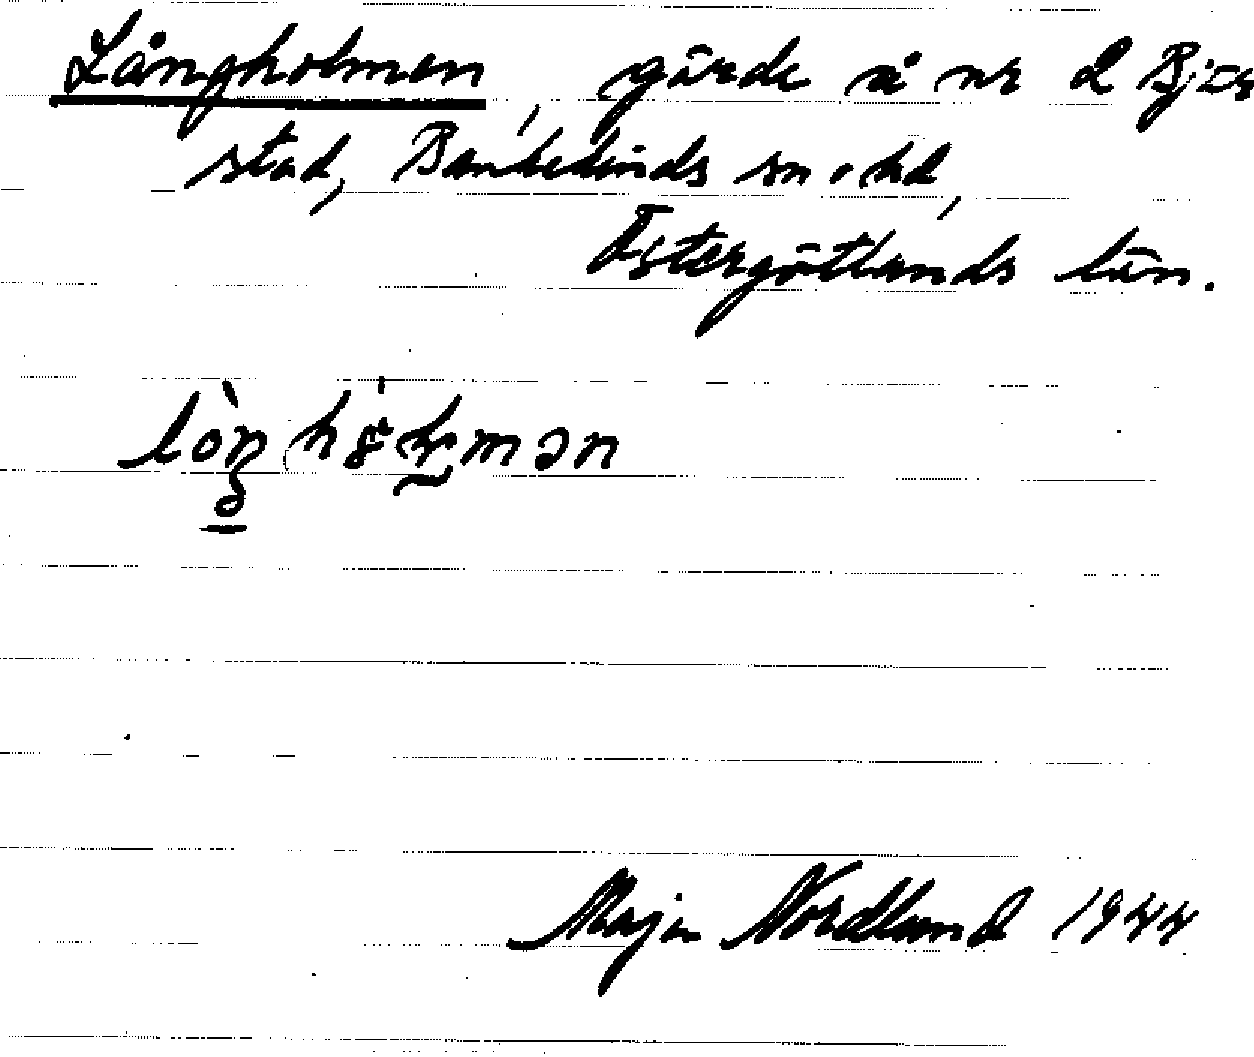 Långholmen, gärde å nr 2 Bjär
stad, Bankekinds sn o hd,
Östergötlands län.
Maja Nordlund 1944